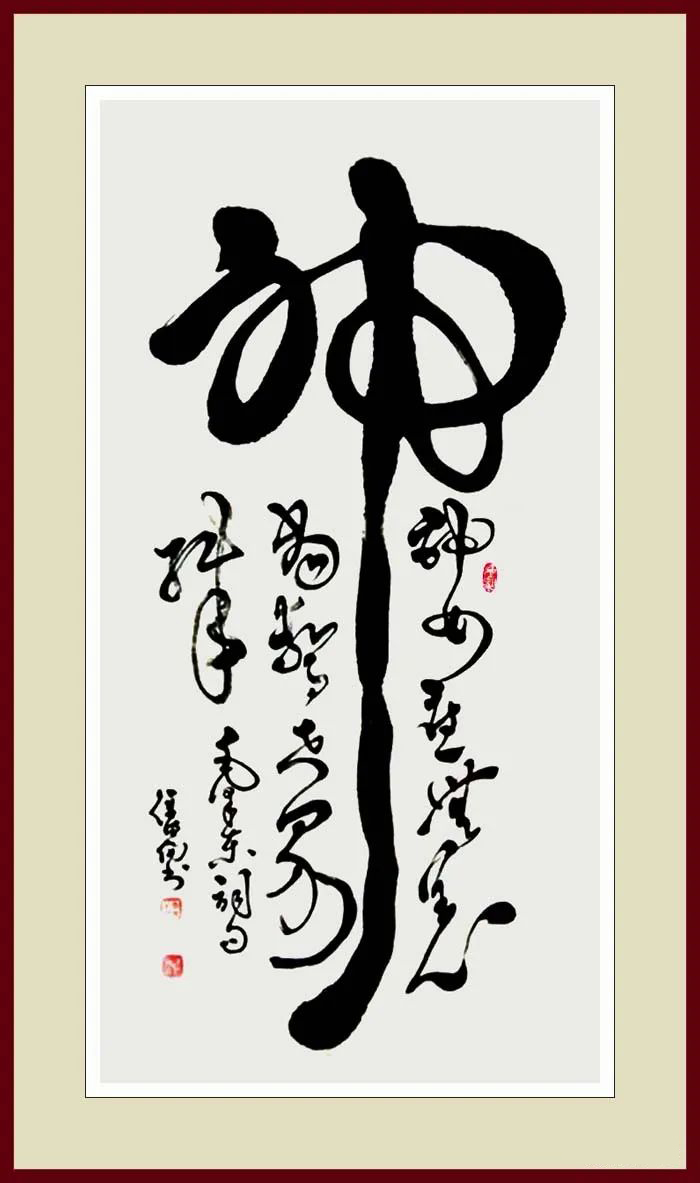 神
神女應無恙
當驚世界
殊
毛澤東詞句